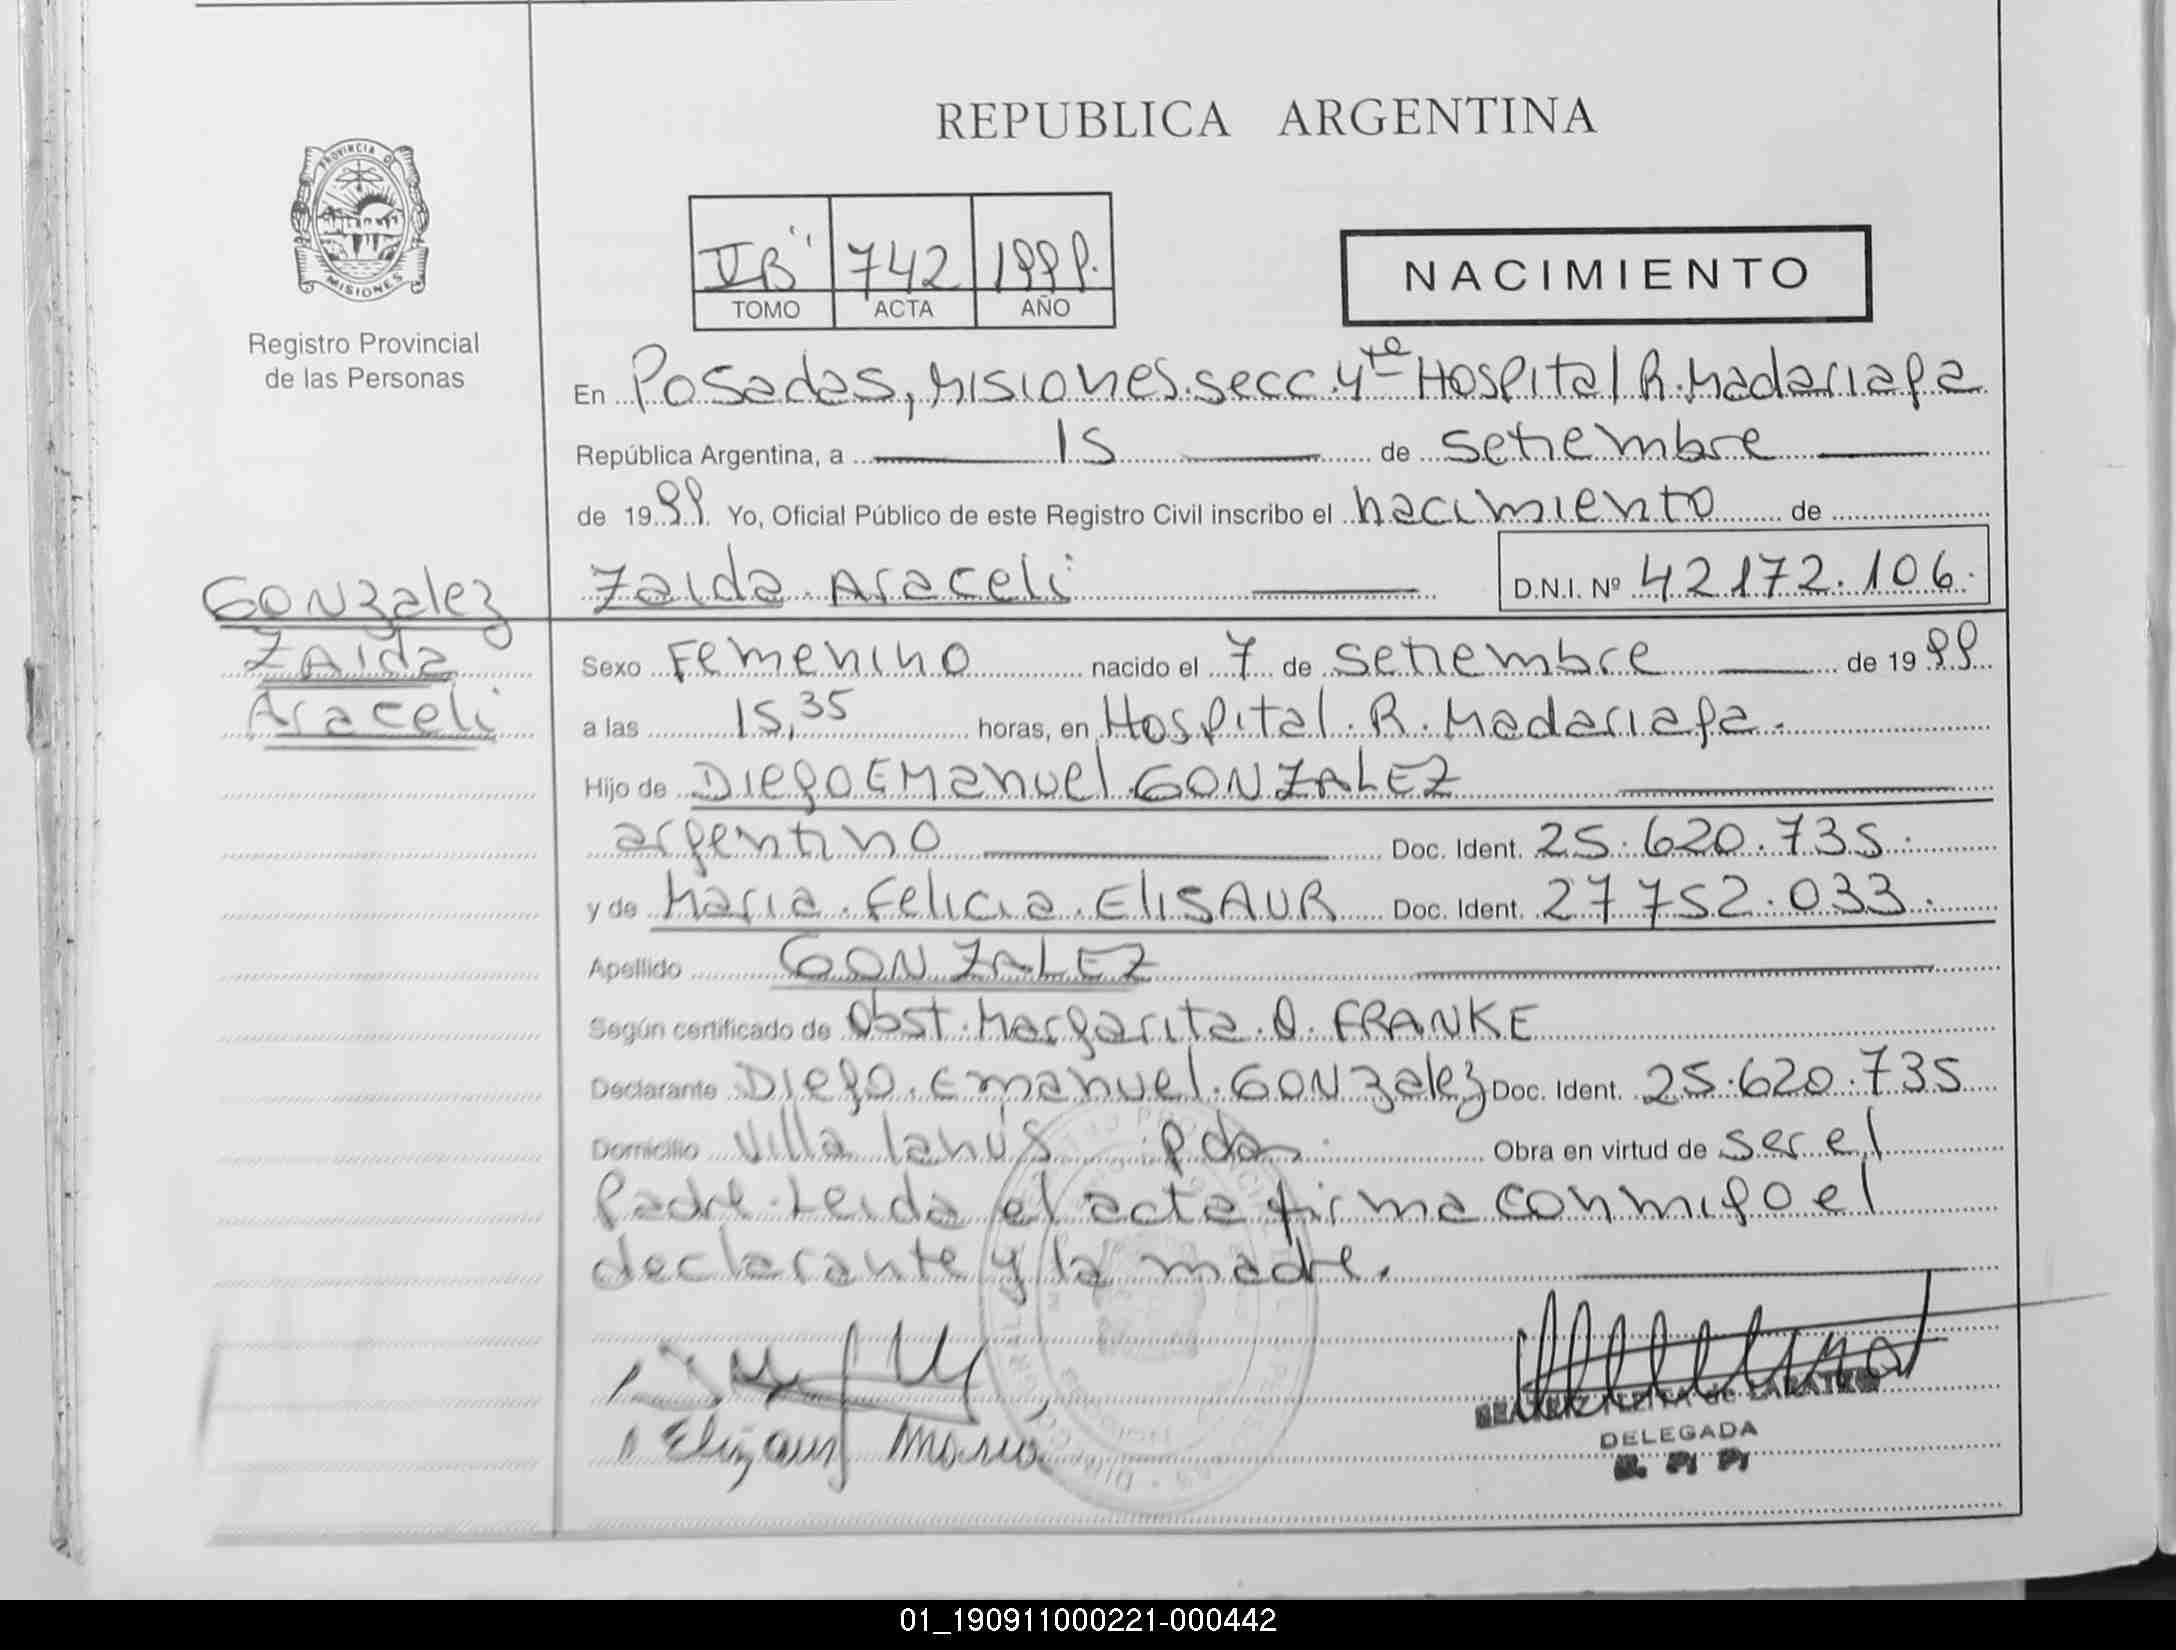 REPUBLICA ARGENTINA
PROVINCIA D
MISIONES
Registro Provincial
de las Personas
V B" 742 1999.
TOMO ACTA AÑO
NACIMIENTO
En Posadas, Misiones. secc. 4ta Hospital R. Madariaga
República Argentina, a 15 de setiembre
de 1999. Yo, Oficial Público de este Registro Civil inscribo el nacimiento de
Zaida Araceli D.N.I. Nº 42172.106.
GONzalez
ZAida
Araceli
Sexo Femenino nacido el 7 de setiembre de 1999
a las 15,35 horas, en Hospital. R. Madariaga.
Hijo de Diego EManuel GONZALEZ
argentino Doc. Ident. 25.620.735.
y de Maria. Felicia. EliSAUR Doc. Ident. 27752.033.
Apellido GONZALEZ
Según certificado de Obst. Margarita. O. FRANKE
Declarante Diego. Emanuel. GONzalez Doc. Ident. 25.620.735
Domicilio Villa lanús pdas Obra en virtud de ser el
padre. Leida el acta firma conmigo el
declarante y la madre.
Elizaur Maria
DELEGADA
01_190911000221-000442